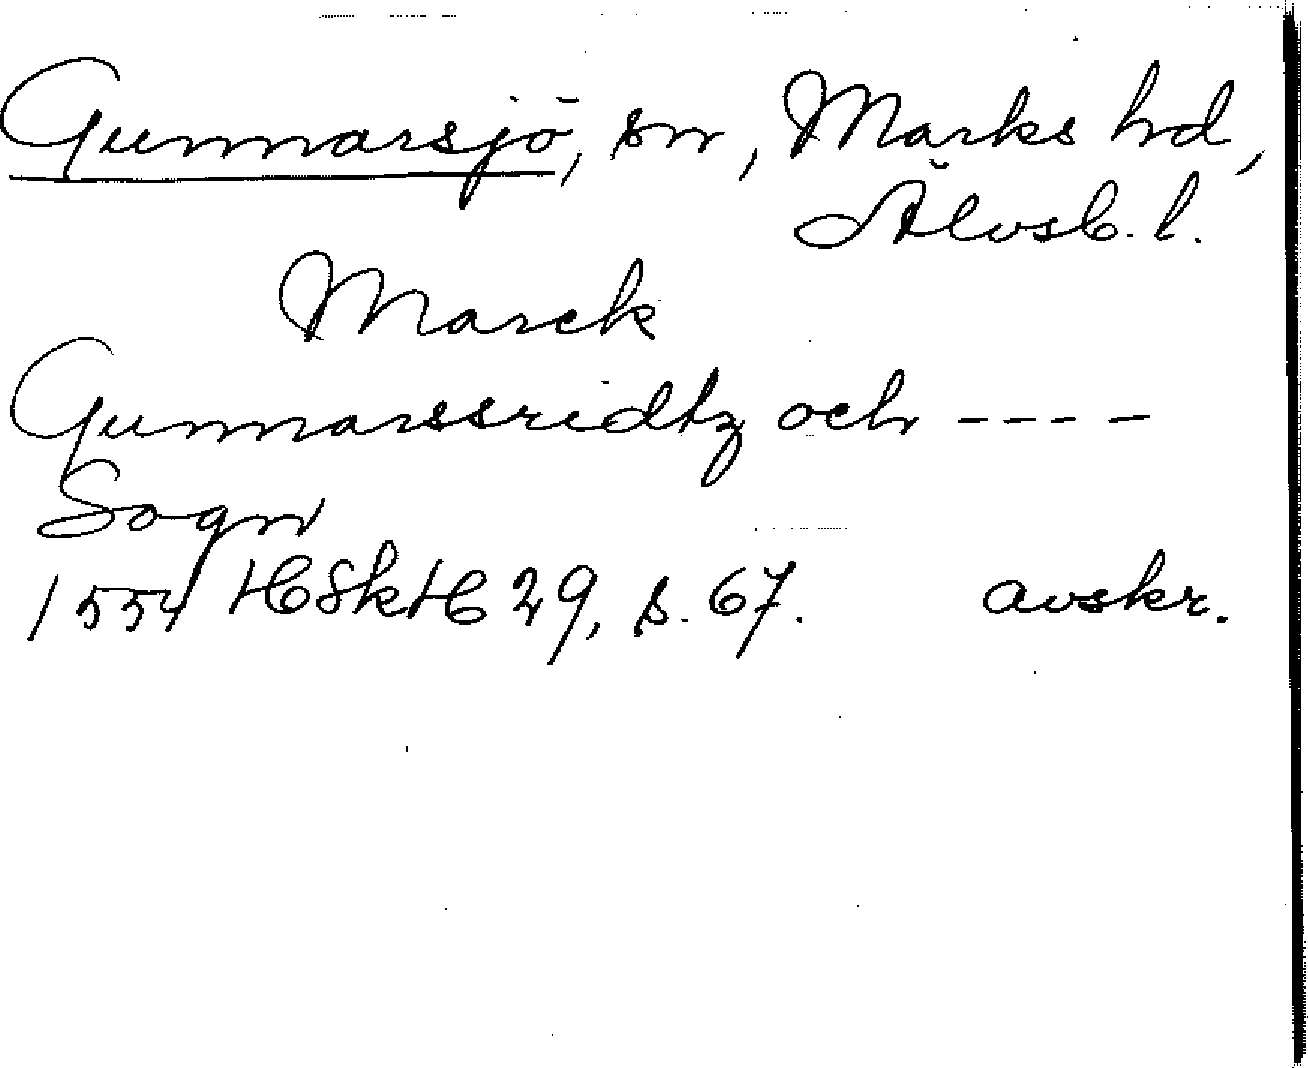 Gunnarsjö, sn, Marks hd,
Älvsb. l.
Marck
Gunnarssridtz och ----
Sogn
1554 HSkH 29, s. 67. avskr.